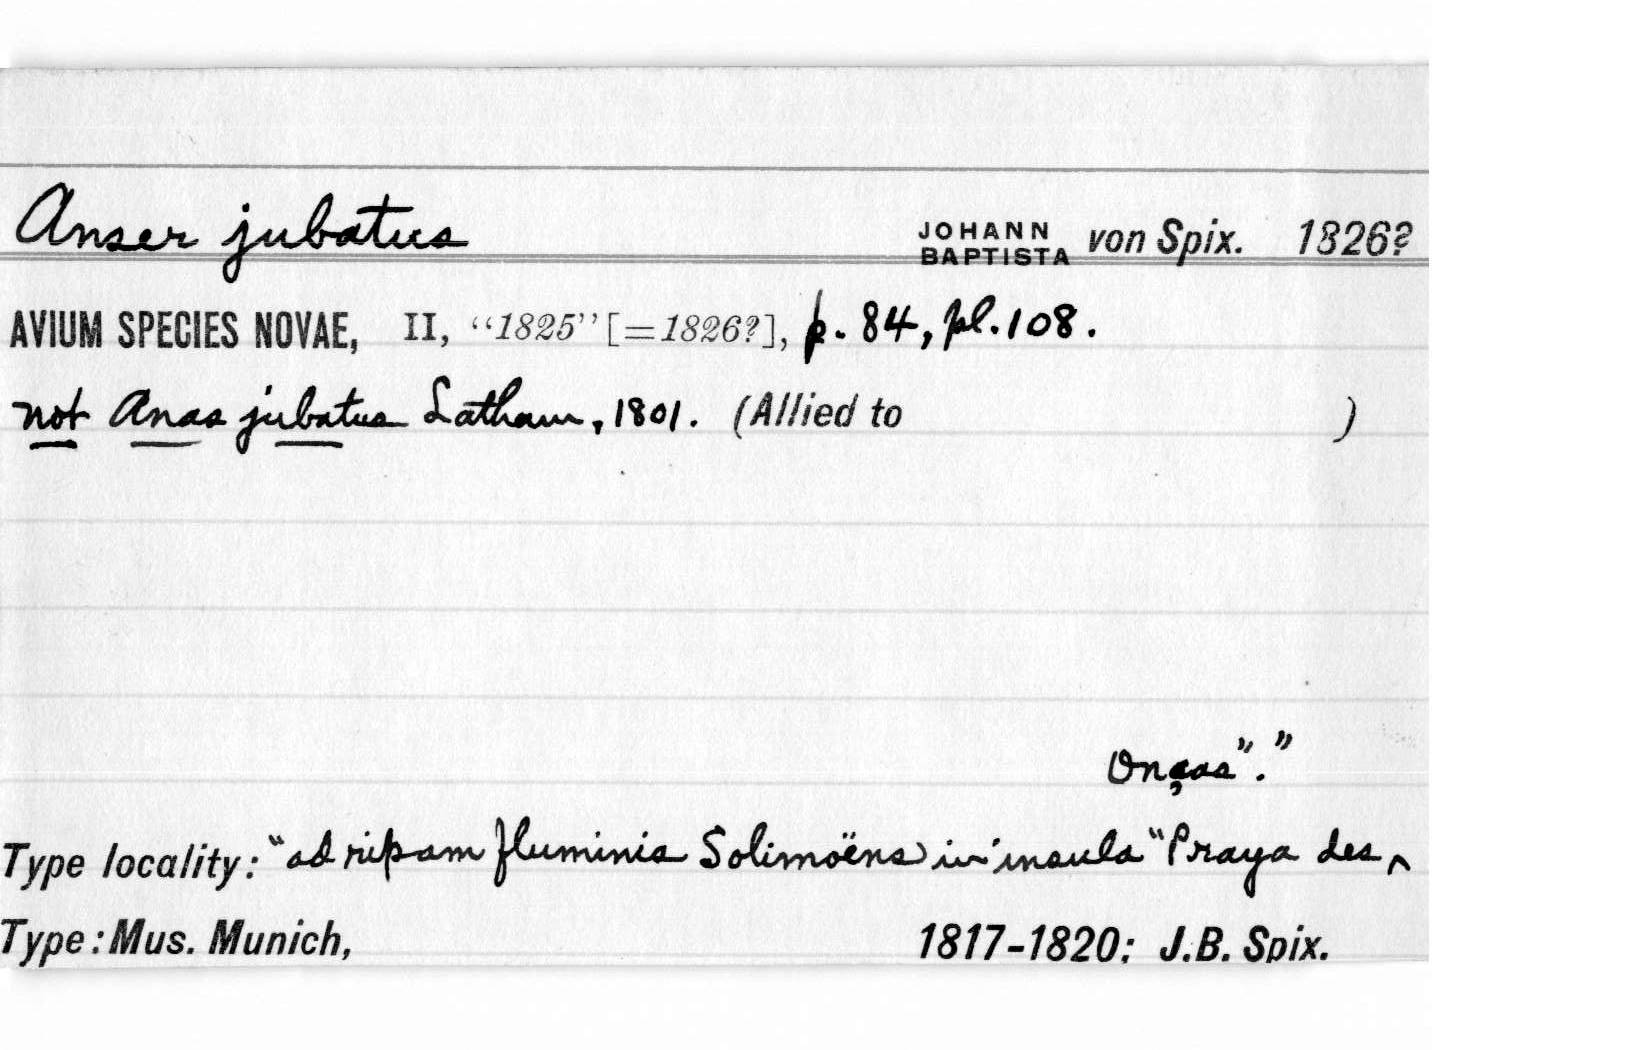 Anser jubatus JOHANN BAPTISTA von Spix. 1826?
AVIUM SPECIES NOVAE, II, “1825” [=1826?], p. 84, pl. 108.
not Anas jubatus Latham, 1801. (Allied to )
Onças”.”
Type locality: “ad ripam fluminis Solimoëns in insula “Praya des ^
Type: Mus. Munich, 1817-1820; J.B. Spix.